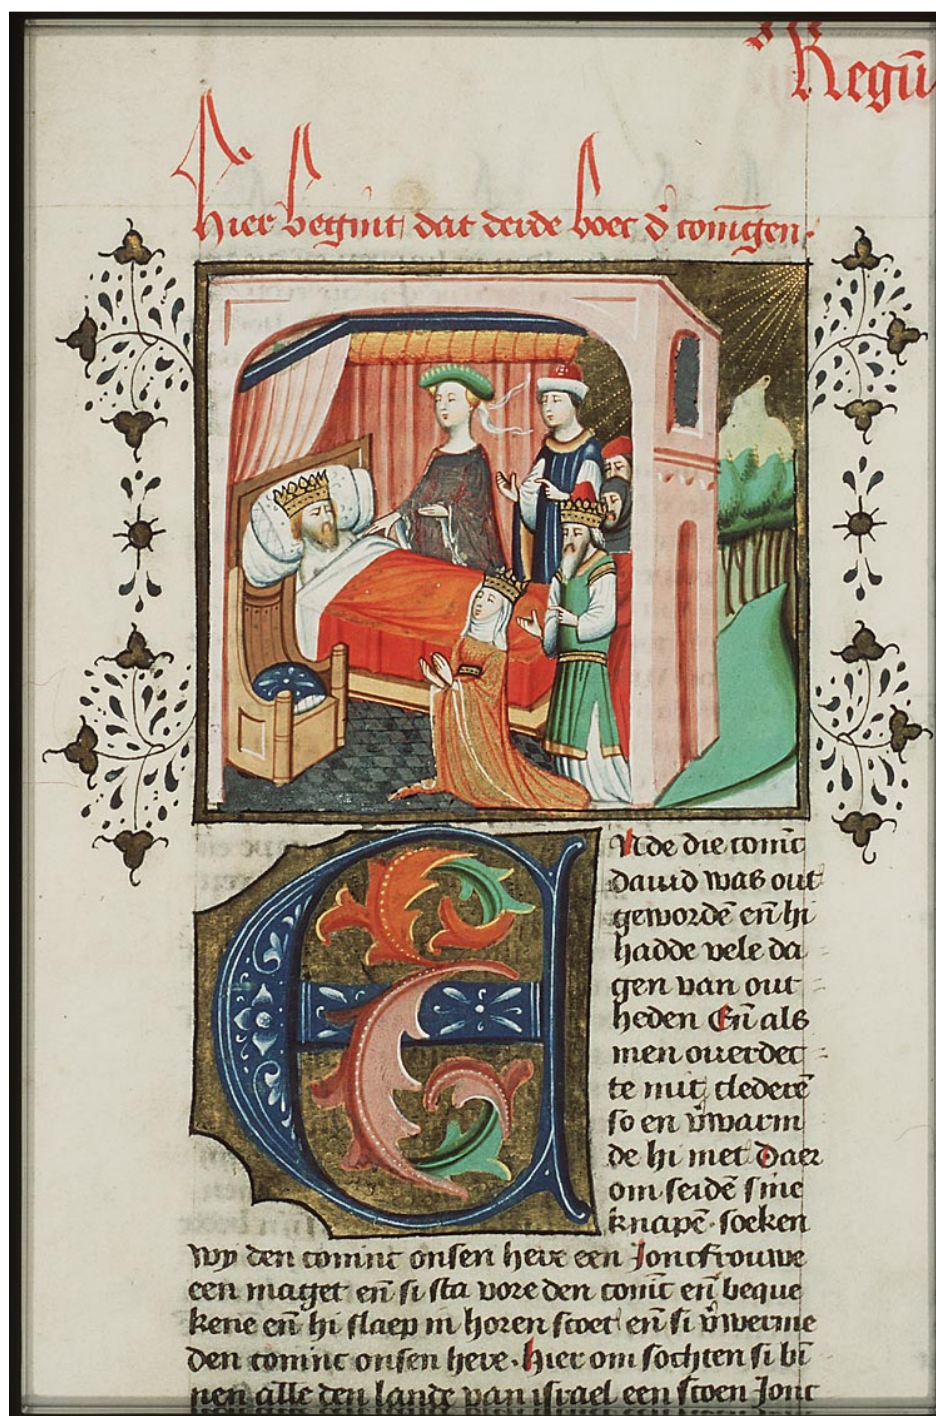 Regū
hier begint dat derde boec đ coningen·
Ende die coninc
dauid was out
gewordē en̄ hi
hadde vele da
gen van out
heden En̄ als
men ouerdec
te mit clederē
so en v̄warm
de hi niet Daer
om seidē sine
knapē· soeken
wy den coninc onsen here een Joncfrouwe
een maget en̄ si sta vore den conīc en̄ beque
kene en̄ hi slaep in horen scoet en̄ si v̄werme
den coninc onsen here· Hier om sochten si bī
nen alle den lande van israel een scoen Jonc